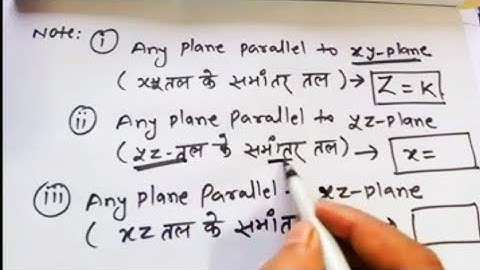 Note: (i) Any plane parallel to xy-plane
(xyतल के समांतर तल) → Z = K
(ii) Any plane parallel to yz-plane
(yz-तल के समांतर तल) → x =
(iii) Any plane Parallel xz-plane
(xz तल के समांत